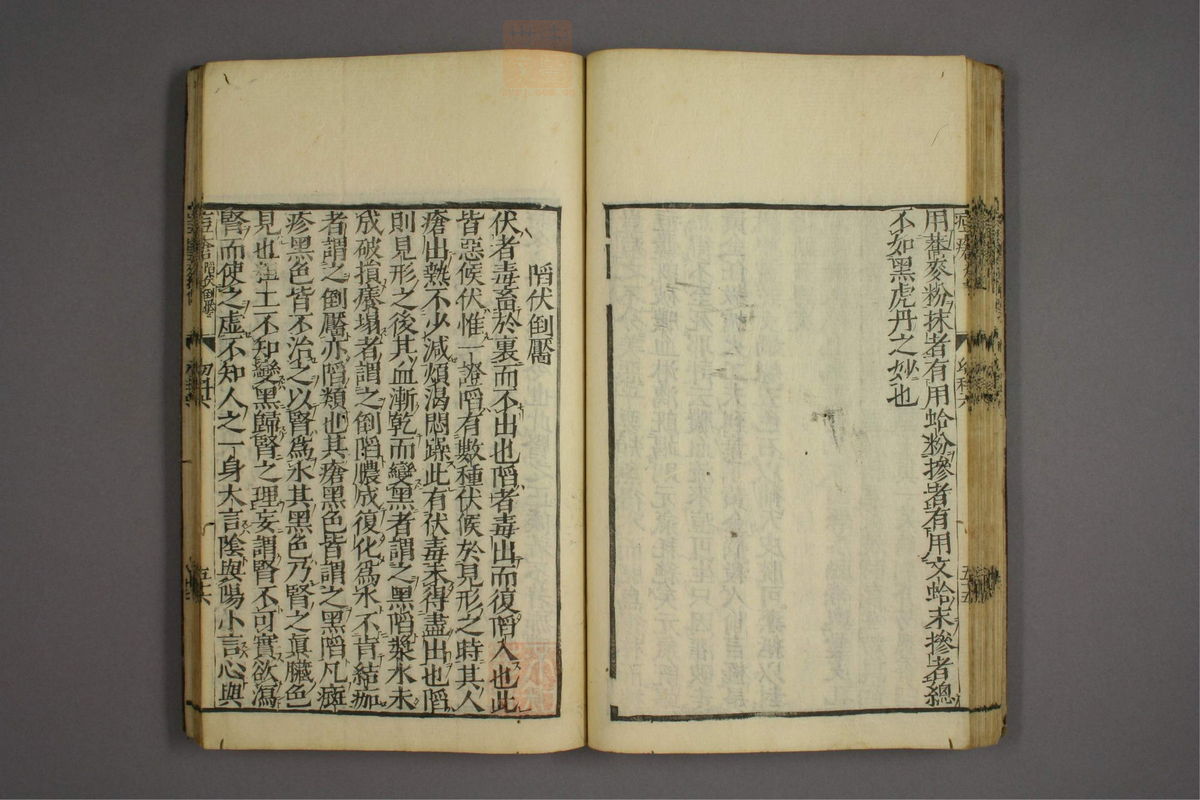 用蕎麥粉抹者有用蛤粉摻者有用文蛤末摻者總
不如黑虎丹之妙也
陷伏倒靨
伏者毒畜於裏而不出也陷者毒出而復陷入也此
皆惡候伏惟一證陷有數種伏候於見形之時其人
瘡出熱不少減煩渴悶躁此有伏毒未得盡出也陷
則見形之後其血漸乾而變黑者謂之黑陷漿水未
成破損癢塌者謂之倒陷膿成復化爲水不肯結痂
者謂之倒靨亦陷類也其瘡黑色皆謂之黑陷凡斑
疹黑色皆不治之以腎爲水其黑色乃腎之眞臟色
見也 土不知變黑歸腎之理妄謂腎不可實欲瀉
腎而使之虛不知人之一身大言陰與陽小言心與
痘瘡陷伏倒靨
幼科六
五六